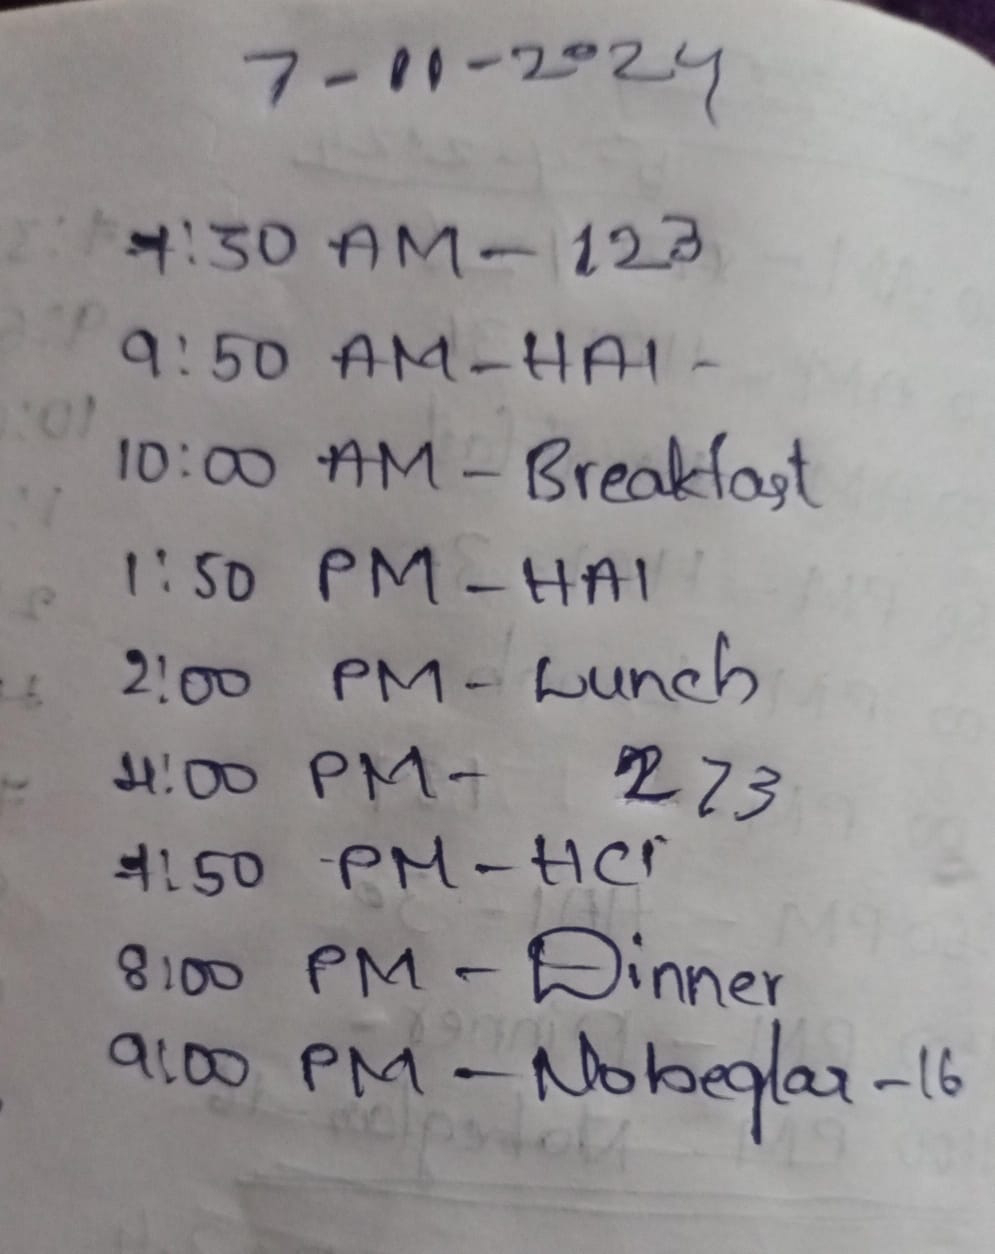 7-11-2024
7:30 AM - 123
9:50 AM - HAI -
10:00 AM - Breakfast
1:50 PM - HAI
2:00 PM - Lunch
4:00 PM - 273
7:50 PM - HCI
8:00 PM - Dinner
9:00 PM - Nobeglar - 16